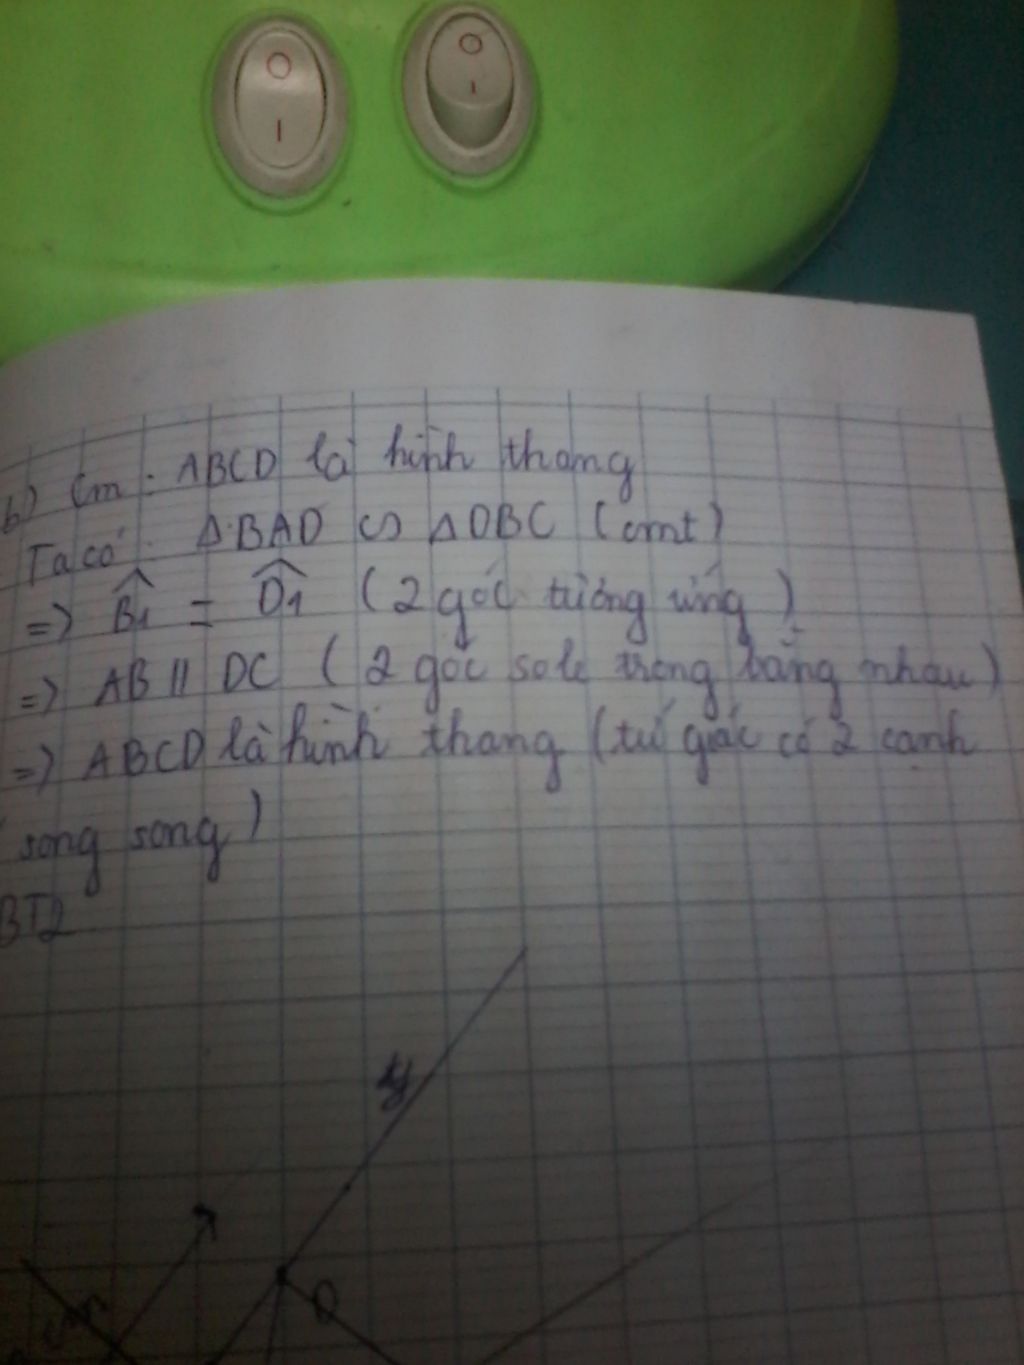 O
I
O
I
b) Cm: ABCD là hình thang
Ta có: Δ BAD ∽ Δ DBC (cmt)
=> B̂1 = D̂1 (2 góc tương ứng)
=> AB // DC (2 góc sole trong bằng nhau)
=> ABCD là hình thang (tứ giác có 2 cạnh
song song)
BT2
y
O